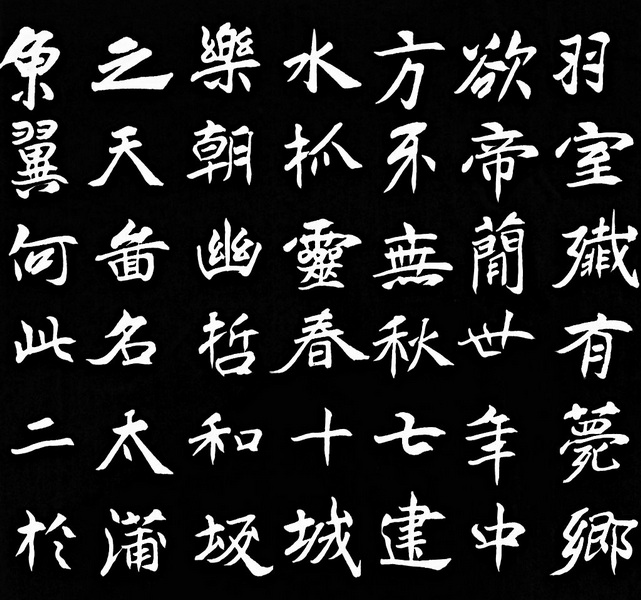 魚之樂水方欲羽
翼天朝抓牙帝室
何啚幽靈無蕳殲
此名哲春秋卅有
二太和十七年薨
於蒲坂城建中鄉